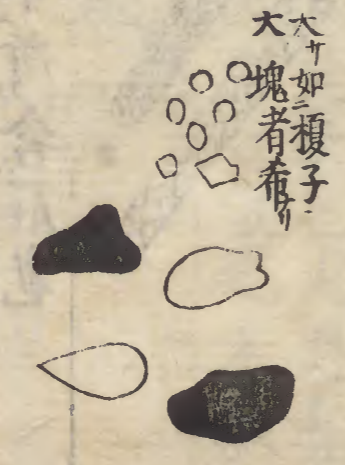 大サ如ニ榎子
大塊者希ナリ